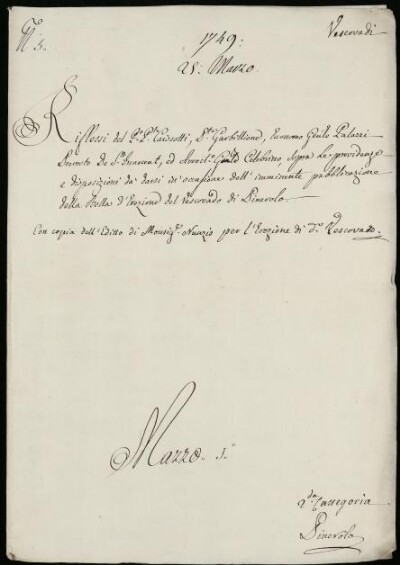 N.° 5.
Vescovadi
1749:
25: Marzo.
Riflessi del P.mo P.te Caissotti, P.te Garbillions, Economo Gn̄le Palazzi
Prevosto de S.t Innocent, ed Avvoc.to Gn̄le Celebrino sopra le providenze
e disposizioni da darsi in occasione dell'imminente pubblicazione
della Bolla d'Erezione del Vescovado di Pinerolo.
Con copia dell'Editto di Monsig.r Nunzio per l'Erezione di d.o Vescovado.
Mazzo. 1.°
2.da Cattegoria
Pinerolo